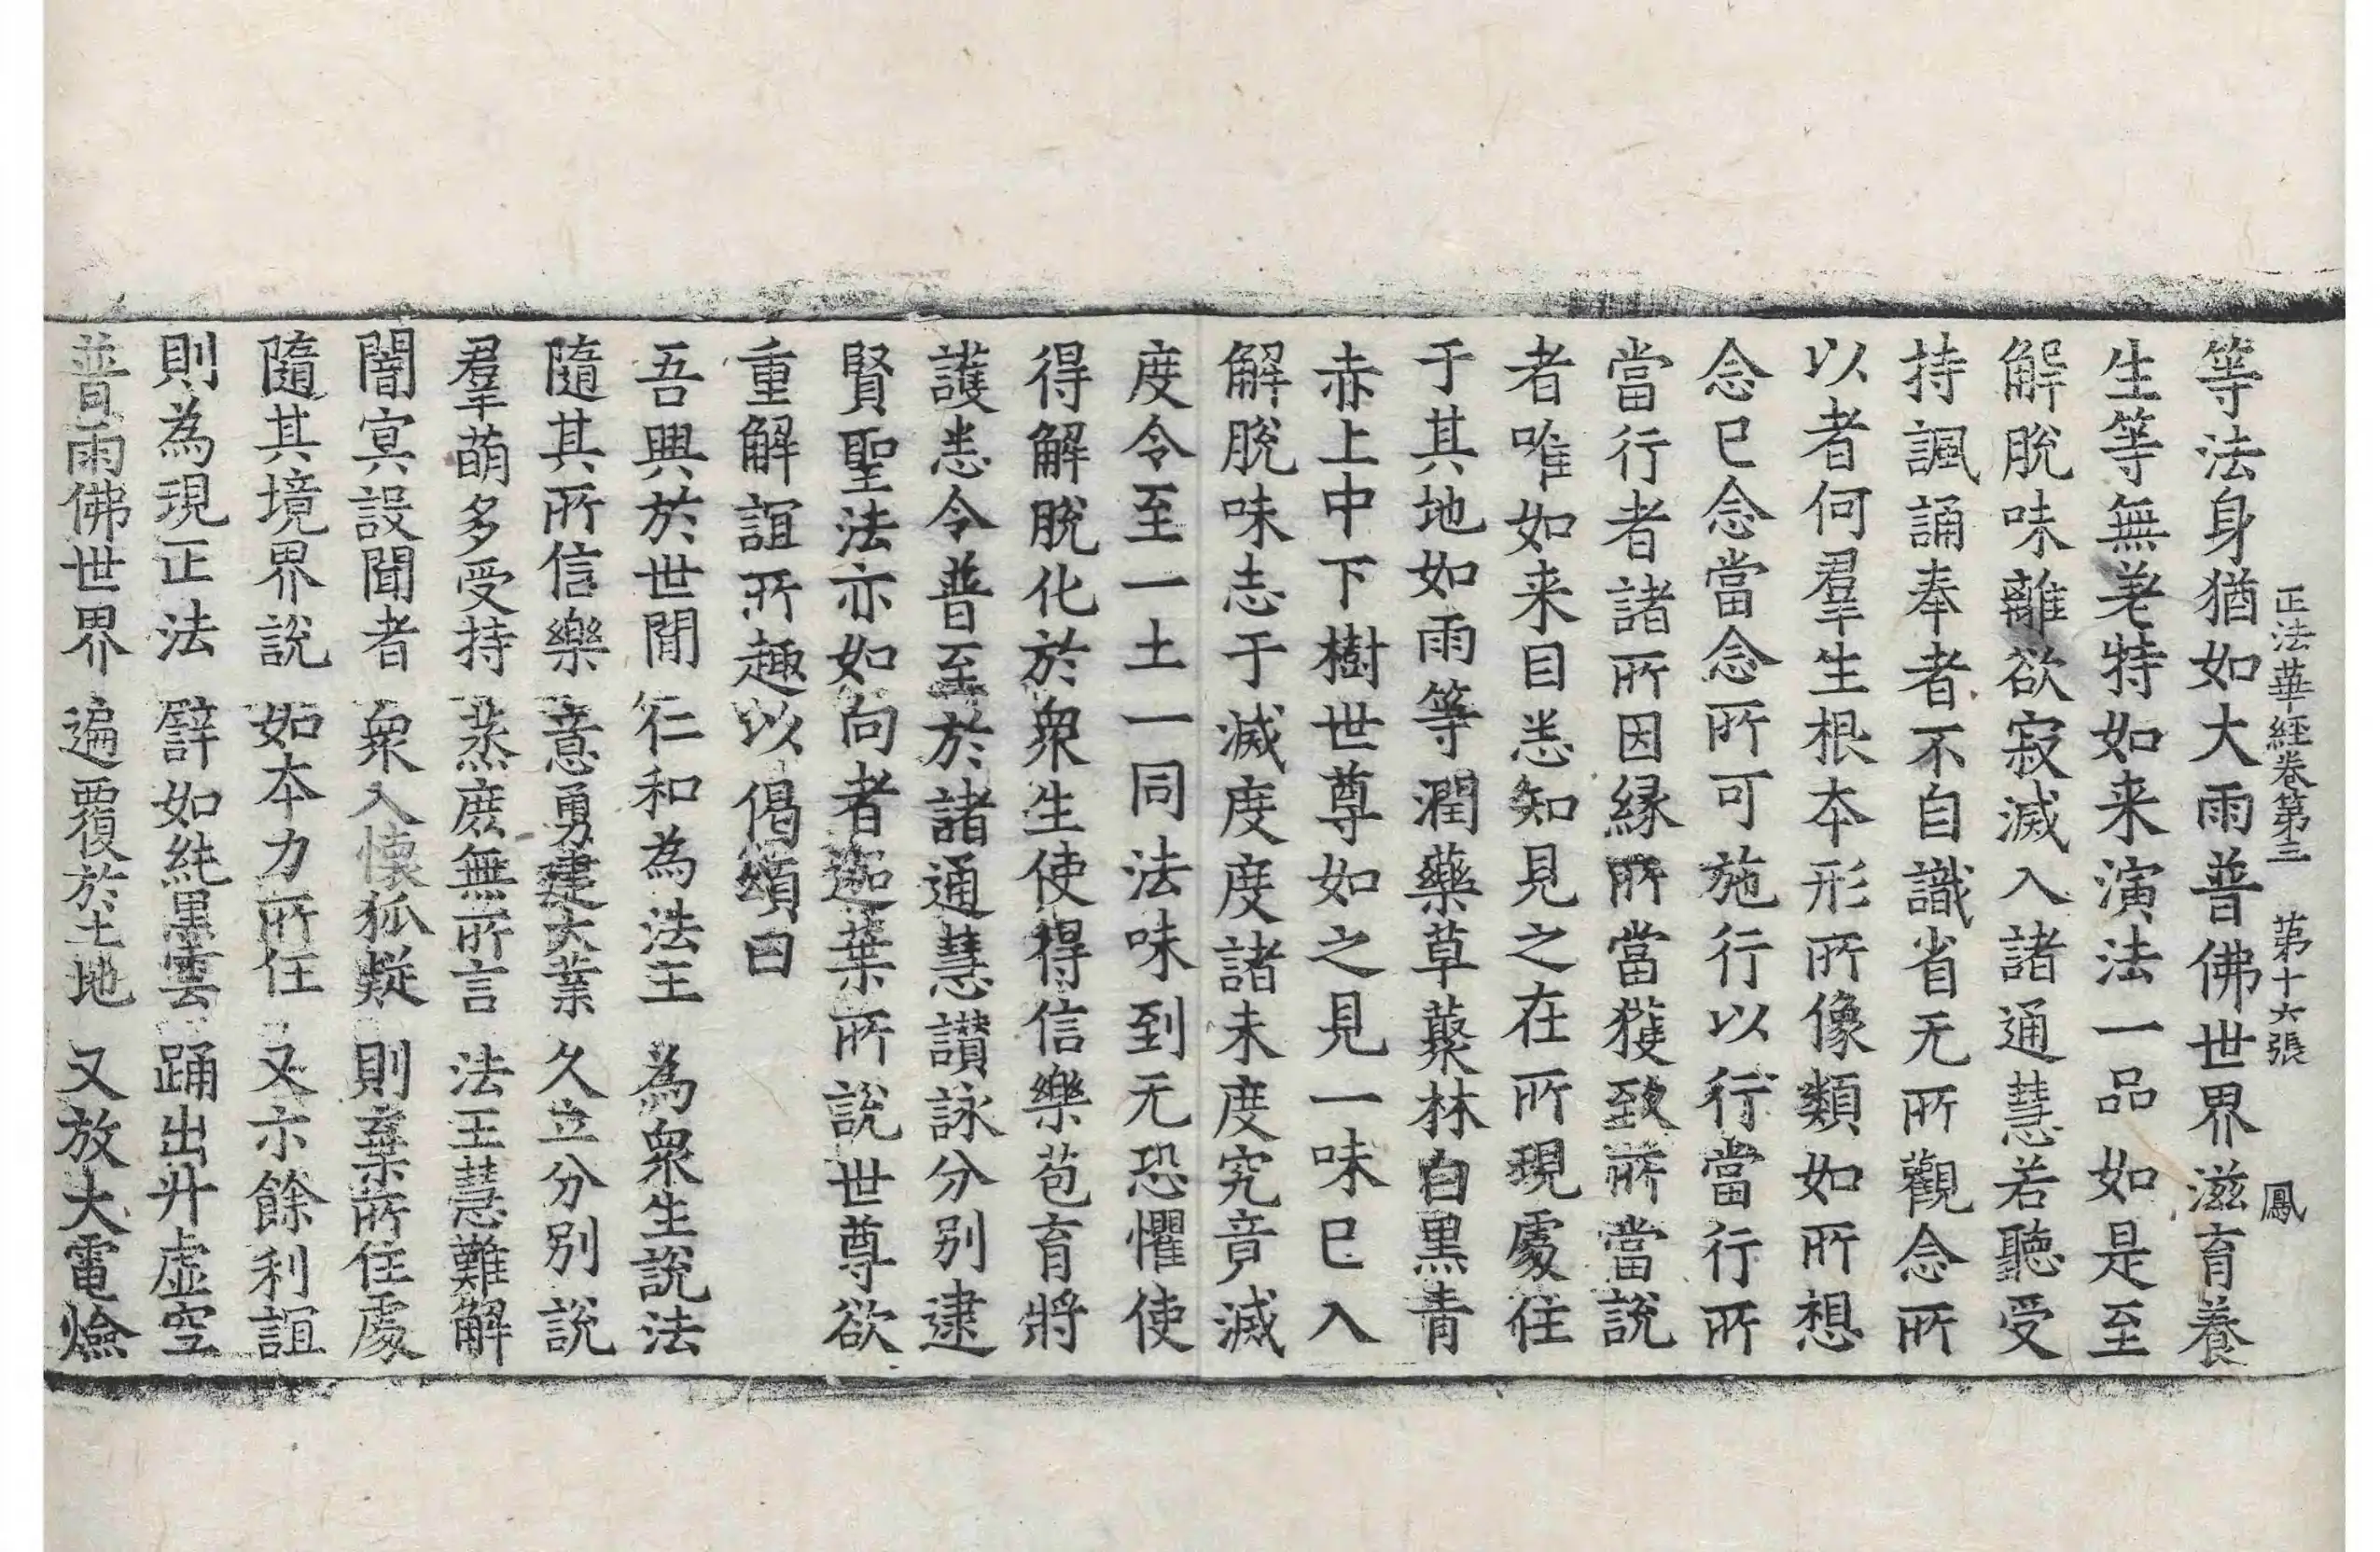 正法華經卷第三　第十六張　鳳
等法身猶如大雨普佛世界滋育養
生等無差特如来演法一品如是至
解脫味離欲寂滅入諸通慧若聽受
持諷誦奉者不自識省无所觀念所
以者何羣生根本形所像類如所想
念已念當念所可施行以行當行所
當行者諸所因緣所當獲致所當說
者唯如来目悉知見之在所現處住
于其地如雨等潤藥草藂林白黑青
赤上中下樹世尊如之見一味已入
解脫味志于滅度度諸未度究竟滅
度令至一土一同法味到无恐懼使
得解脫化於衆生使得信樂苞育將
護悉令普至於諸通慧讚詠分別逮
賢聖法亦如向者迦葉所說世尊欲
重解誼所趣以偈頌曰
吾興於世間　仁和為法王　為衆生說法
隨其所信樂　意勇建大業　久立分別說
羣萌多受持　蒸庶無所言　法王慧難解
闇冥設聞者　衆人懷狐疑　則棄所住處
隨其境界說　如本力所任　又亦餘利誼
則為現正法　譬如純黑雲　踊出升虛空
普雨佛世界　遍覆於土地　又放大電燄